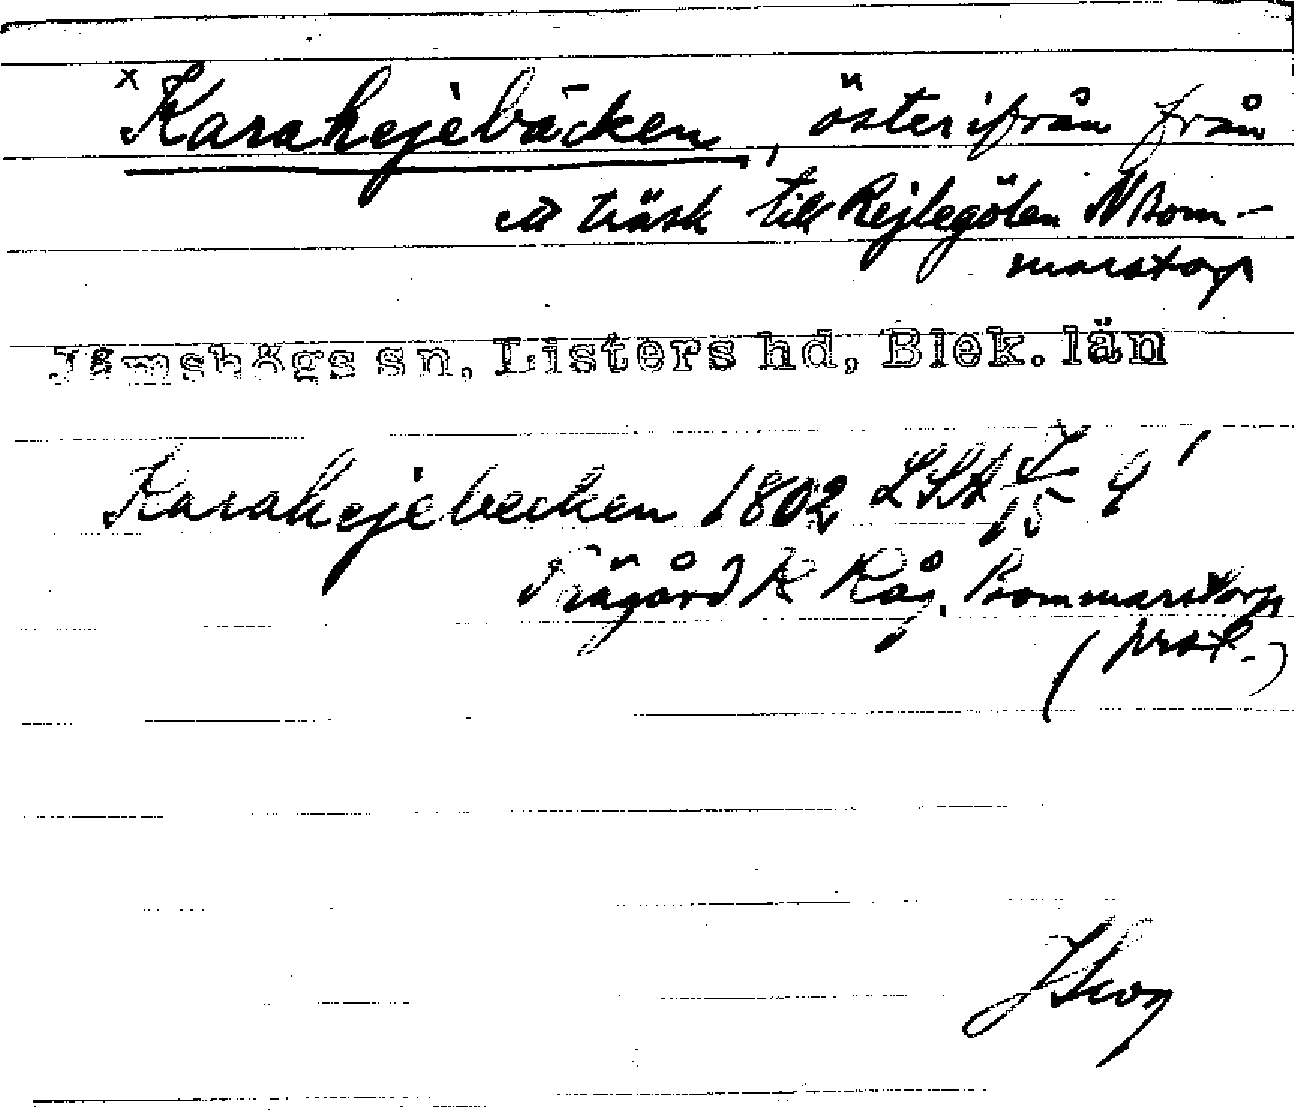 x Karahejebäcken, österifrån från
ett träsk till Rejlegölen N Bom-
marstorp
Jämshögs sn, Listers hd, Blek. län
Karahejebecken 1802 LSA J/15 9'
Trägård R Råg. Bommarstorp
(prot.)